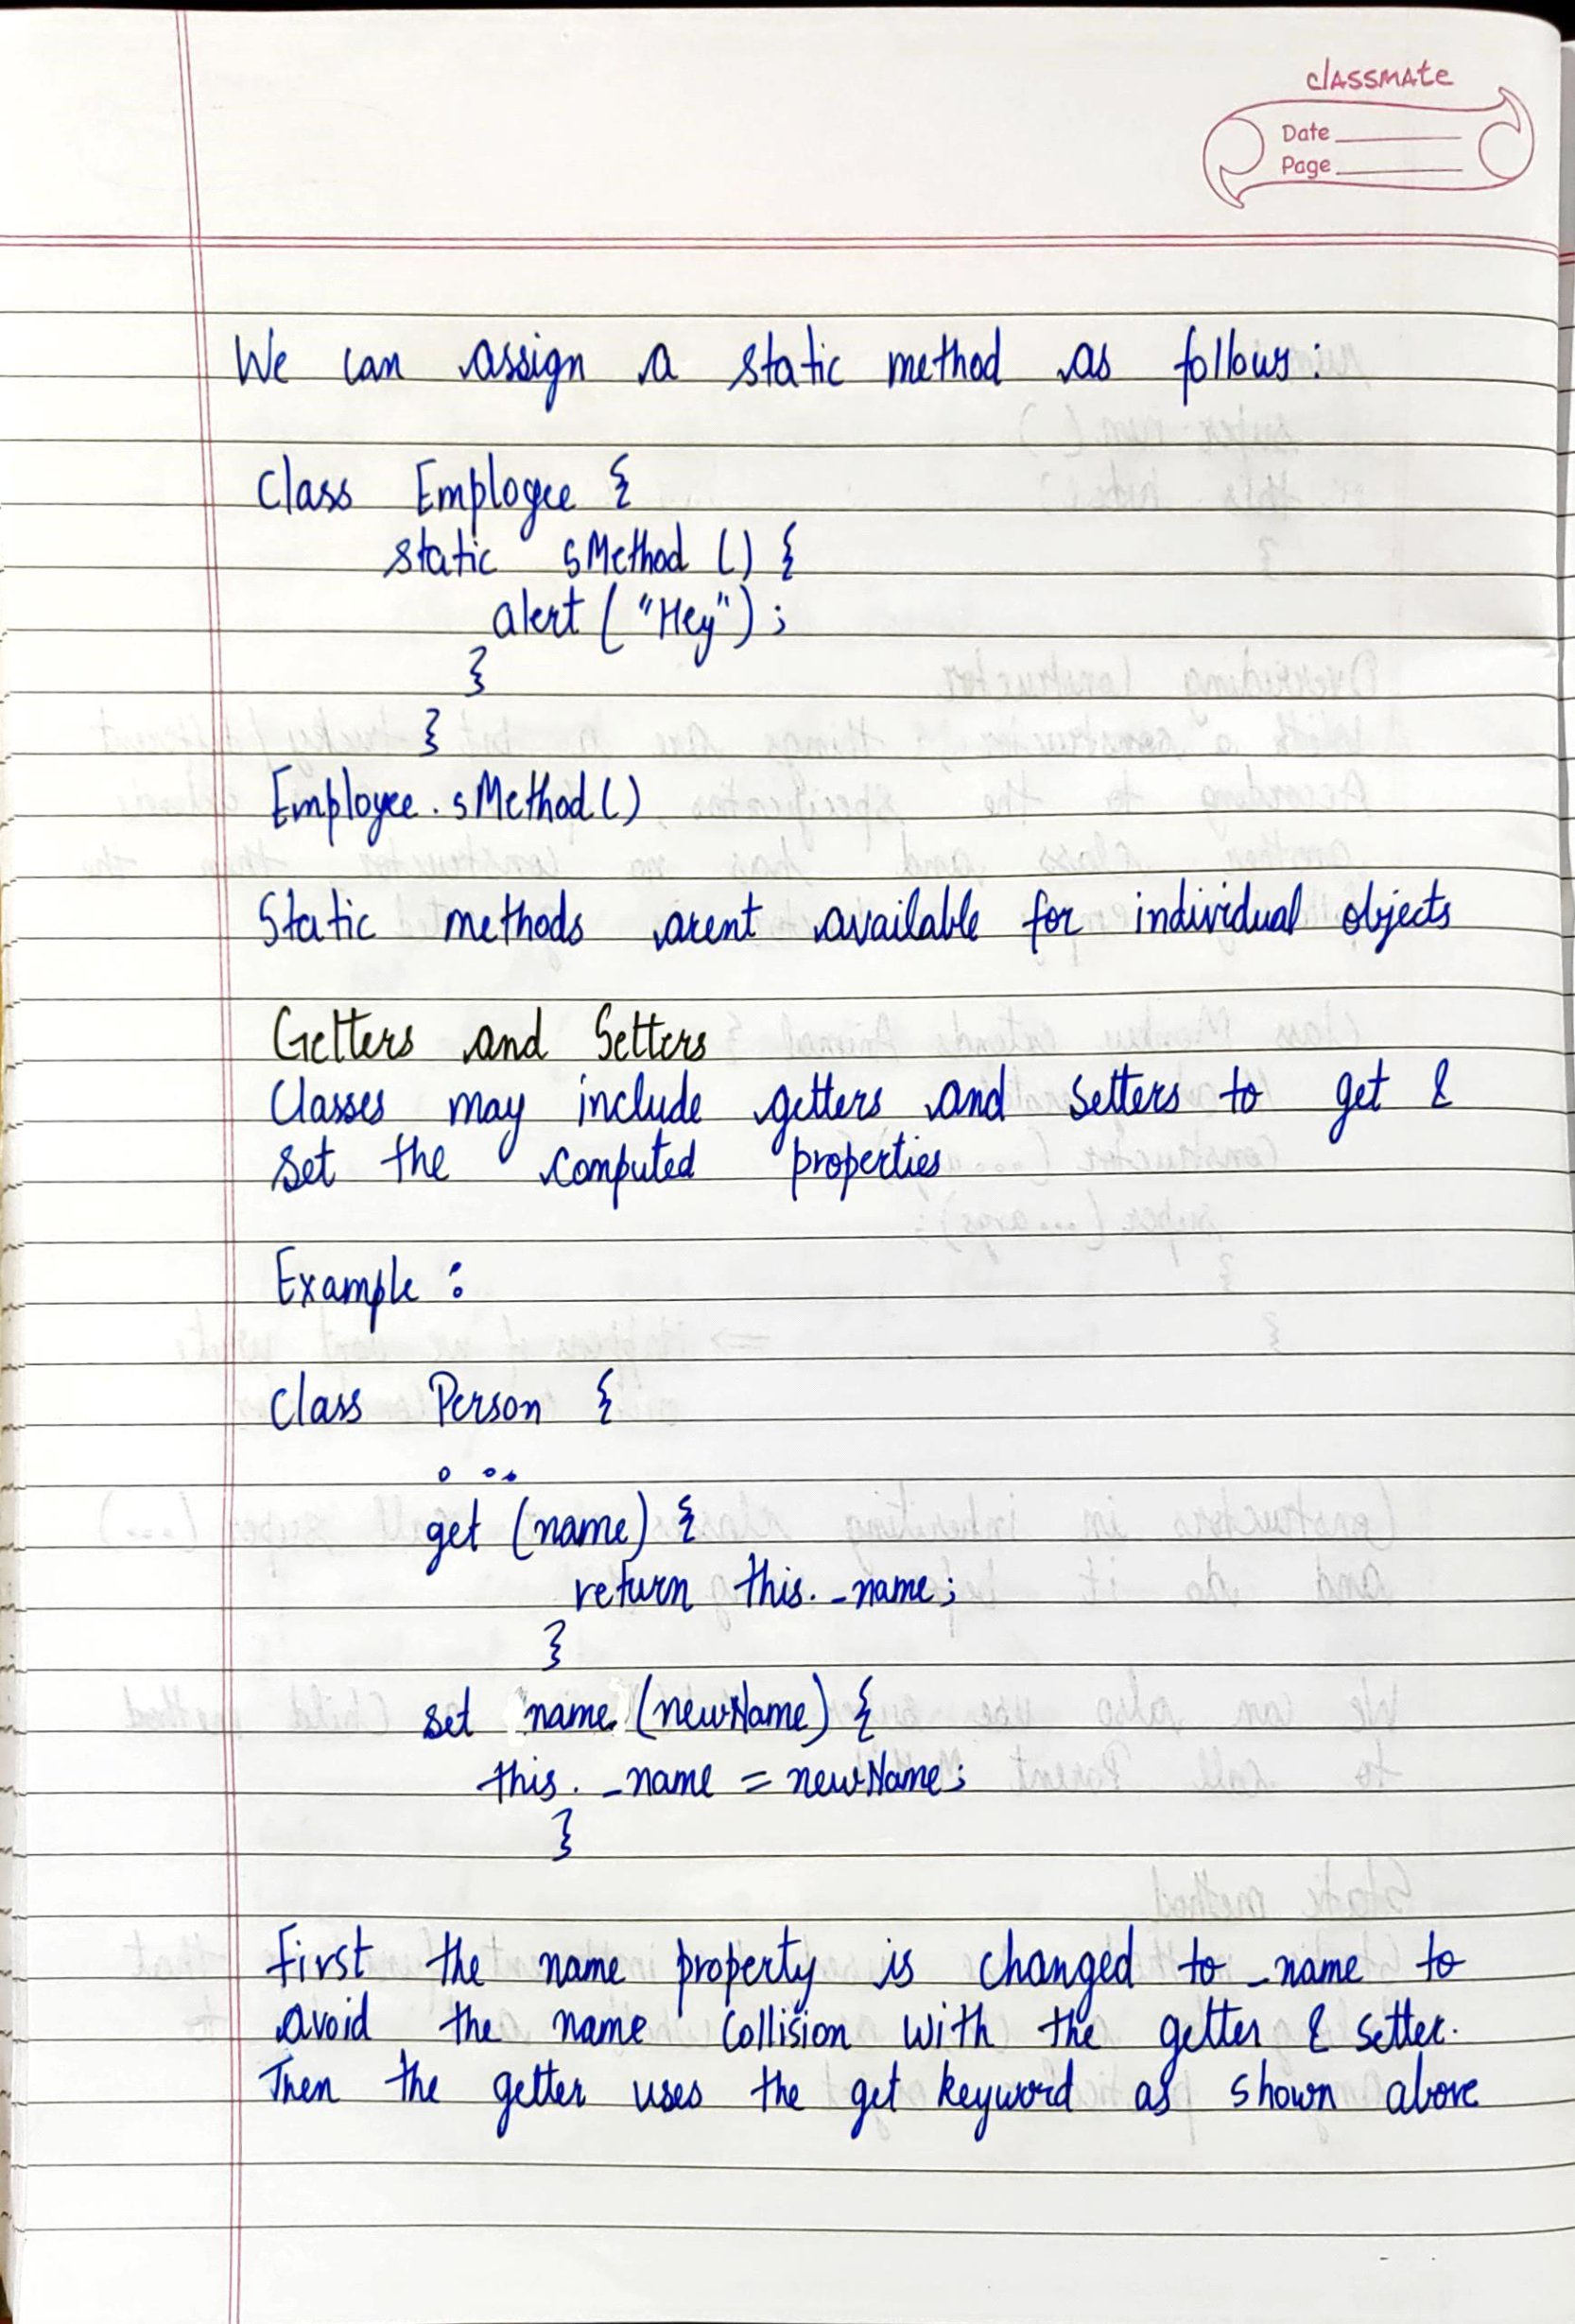 classmate
Date
Page
We can assign a static method as follows:
Class Employee {
static sMethod () {
alert ("Hey");
}
}
Employee.sMethod()
Static methods arent available for individual objects
Getters and Setters
Classes may include getters and setters to get &
set the computed properties
Example:
Class Person {
...
get (name) {
return this._name;
}
set name (newName) {
this._name = newName;
}
First the name property is changed to _name to
avoid the name collision with the getter & setter.
Then the getter uses the get keyword as shown above